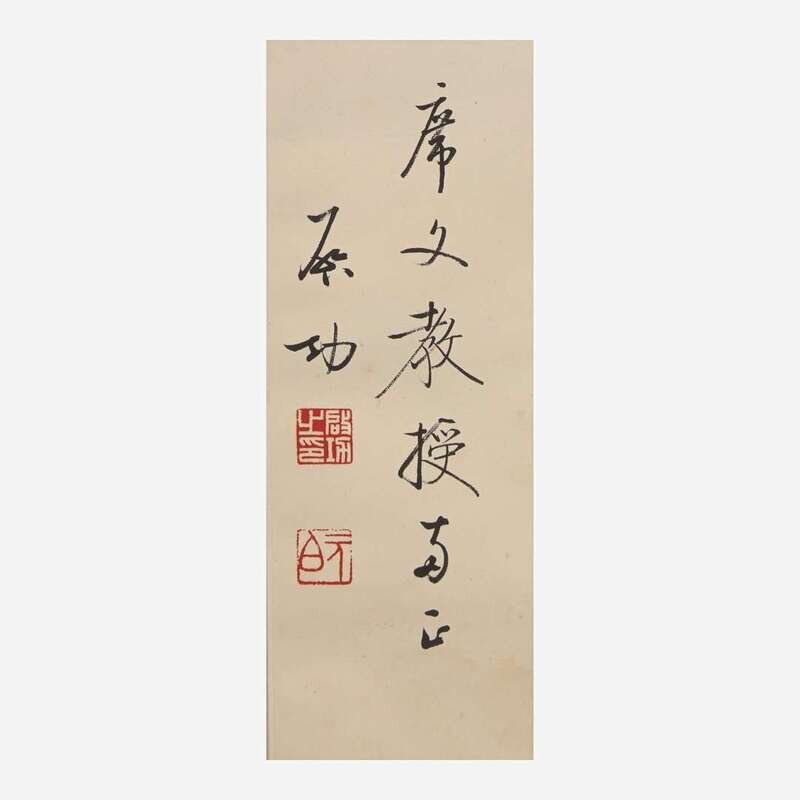 席文教授正
启功
啟功之印
元白